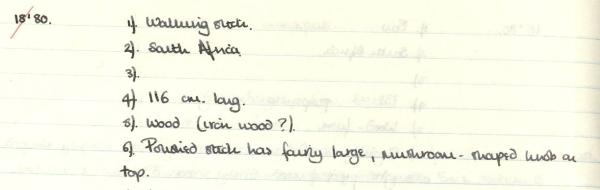 18'80. 1). Walking stick.
2). South Africa
3).
4). 116 cm. long.
5). Wood (iron wood?).
6). Polished stick has fairly large, mushroom-shaped knob on
top.